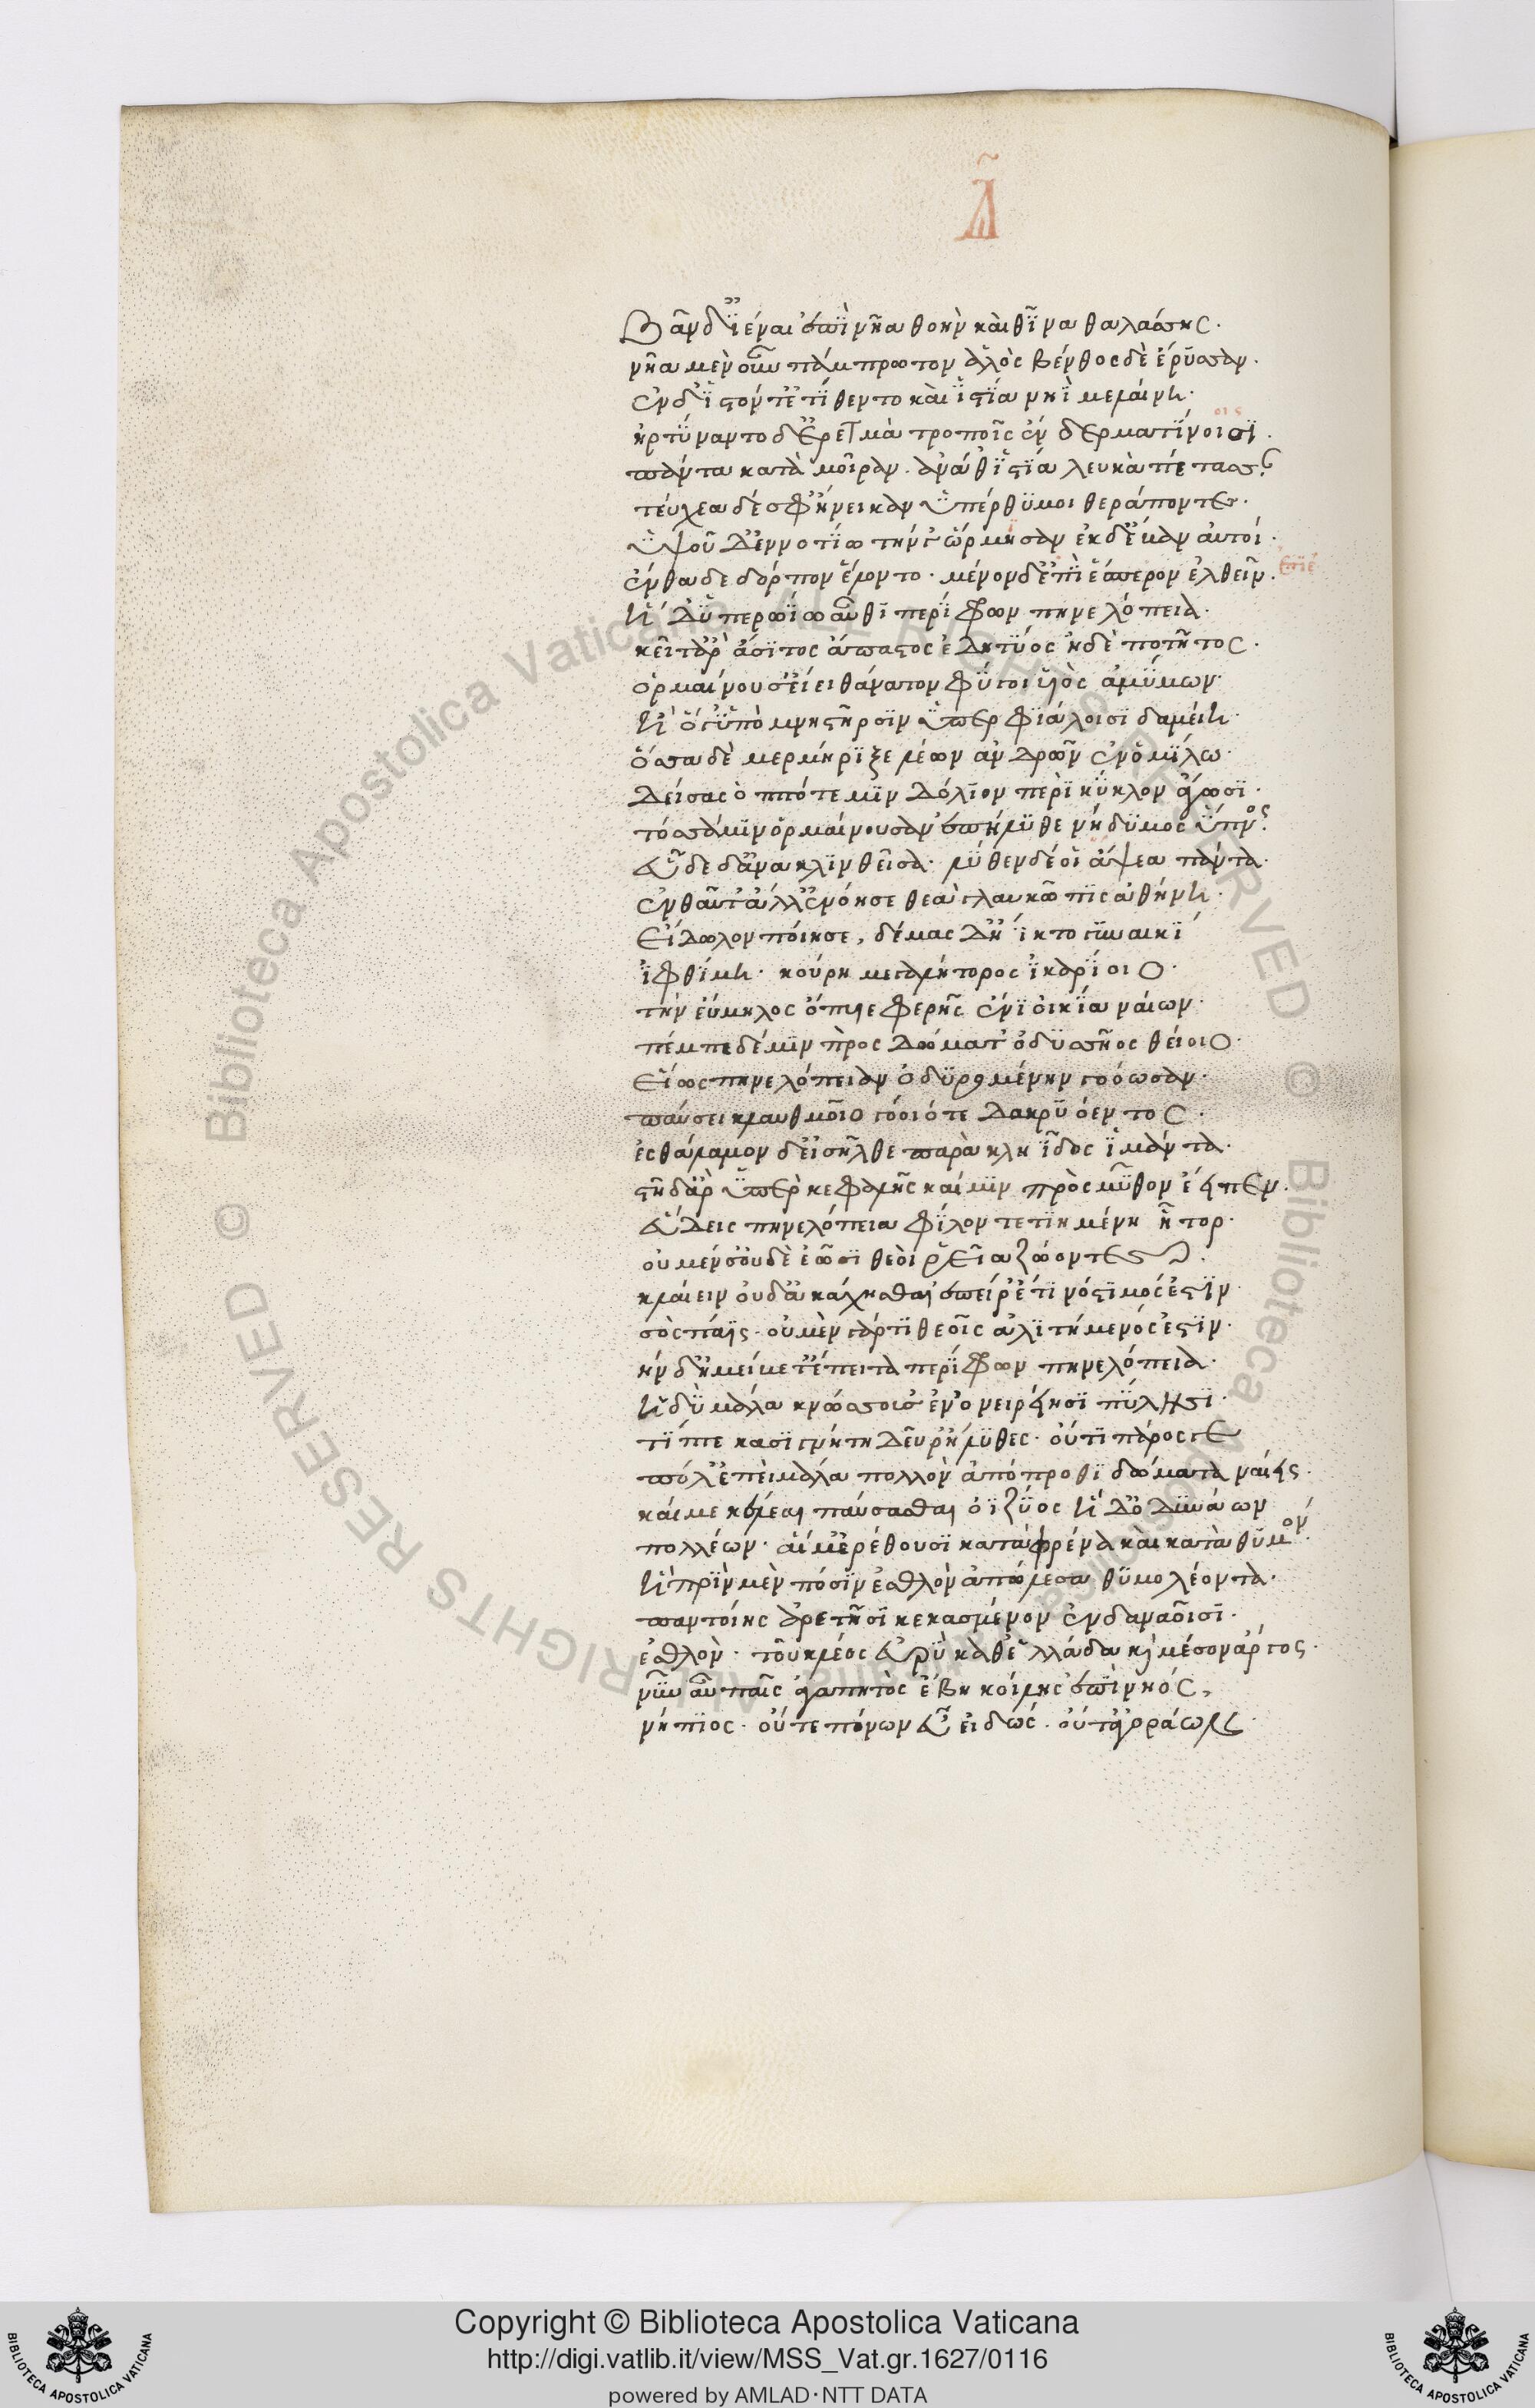 Δ
Βὰν δ' ἰέναι ἐπὶ νῆα θοὴν καὶ θῖνα θαλάσσης·
νῆα μὲν οὖν πάμπρωτον ἁλὸς βένθος δὲ ἔρυσσαν·
ἐν δ' ἱστόν τ' ἐτίθεντο καὶ ἱστία νηῒ μελαίνῃ·
ἠρτύναντο δ' ἐρετμὰ τροποῖς ἐν δερματίνοισι·
οις
πάντα κατὰ μοῖραν· ἀνά θ' ἱστία λευκὰ πέτασσ·
τεύχεα δέ σφ' ἤνεικαν ὑπέρθυμοι θεράποντες·
ὑψοῦ δ' ἐν νοτίω τήν γ' ὥρμησαν ἐκ δ' ἔβαν αὐτοί·
ἔνθα δὲ δόρπον ἕλοντο· μένον δ' ἐπὶ ἕσπερον ἐλθεῖν·
ἡ δ' ὑπερωΐω αὖθι περίφρων πηνελόπεια·
κεῖτ' ἄρ' ἄσιτος ἄπαστος ἐδητύος ἠδὲ ποτῆτος·
ὁρμαίνουσ' εἴ οἱ θάνατον φύγοι υἱὸς ἀμύμων·
ἢ ὅγ' ὑπὸ μνηστῆρσιν ὑπερφιάλοισι δαμείη·
ὅσσα δὲ μερμήριξε λέων ἀνδρῶν ἐν ὁμίλω·
δείσας ὁππότε μιν δόλιον περὶ κύκλον ἄγωσι·
τόσσα μιν ὁρμαίνουσαν ἐπήλυθε νήδυμος ὕπνος·
εὗδε δ' ἀνακλινθεῖσα· λύθεν δέ οἱ ἅψεα πάντα·
ἔνθ' αὖτ' ἄλλ' ἐνόησε θεὰ γλαυκῶπις ἀθήνη·
εἴδωλον ποίησε, δέμας δ' ἤικτο γυναικί
ἰφθίμη· κούρη μεγαλήτορος ἰκαρίοιο·
τὴν εὔμηλος ὄπυιε φερῆς ἔνι οἰκία ναίων·
πέμπε δέ μιν πρὸς δώματ' ὀδυσσῆος θείοιο·
εἵως πηνελόπειαν ὀδυρομένην γοόωσαν·
παύσει κλαυθμοῖο γόοιό τε δακρυόεντος·
ἐς θάλαμον δ' εἰσῆλθε παρὰ κληῗδος ἱμάντα·
στῆ δ' ἄρ' ὑπὲρ κεφαλῆς καί μιν πρὸς μῦθον ἔειπεν·
εὕδεις πηνελόπεια φίλον τετιημένη ἦτορ·
οὐ μέν σ' οὐδὲ ἐῶσι θεοὶ ῥεῖα ζώοντες·
κλαίειν οὐδ' ἀκάχησθαι ἐπεί ῥ' ἔτι νόστιμός ἐστιν·
σὸς πάϊς· οὐ μὲν γάρ τι θεοῖς ἀλιτήμενός ἐστιν·
τὴν δ' ἠμείβετ' ἔπειτα περίφρων πηνελόπεια·
ἡδὺ μάλα κνώσσουσ' ἐν ὀνειρείησι πύλῃσι·
τίπτε κασιγνήτη δεῦρ' ἤλυθες· οὔτι πάρος γε
πόλ' ἐπεὶ μάλα πολλὸν ἀπόπροθι δώματα ναίεις·
καί με κέλεαι παύσασθαι ὀϊζύος ἠδ' ὀδυνάων
πολλέων· αἵ μ' ἐρέθουσι κατὰ φρένα καὶ κατὰ θυμόν·
ἣ πρὶν μὲν πόσιν ἐσθλὸν ἀπώλεσα θυμολέοντα·
παντοίης ἀρετῆσι κεκασμένον ἐν δαναοῖσι·
ἐσθλόν· τοῦ κλέος εὐρὺ καθ' ἑλλάδα κ μέσον ἄργος·
νῦν αὖ παῖς ἀγαπητὸς ἔβη κοίλης ἐπὶ νηός,
νήπιος· οὔτε πόνων εὖ εἰδώς· οὔτ' ἀγοράων
© Biblioteca Apostolica Vaticana ALL RIGHTS RESERVED
© Biblioteca Apostolica Vaticana ALL RIGHTS RESERVED
Copyright © Biblioteca Apostolica Vaticana
http://digi.vatlib.it/view/MSS_Vat.gr.1627/0116
powered by AMLAD·NTT DATA
BIBLIOTECA APOSTOLICA VATICANA
BIBLIOTECA APOSTOLICA VATICANA